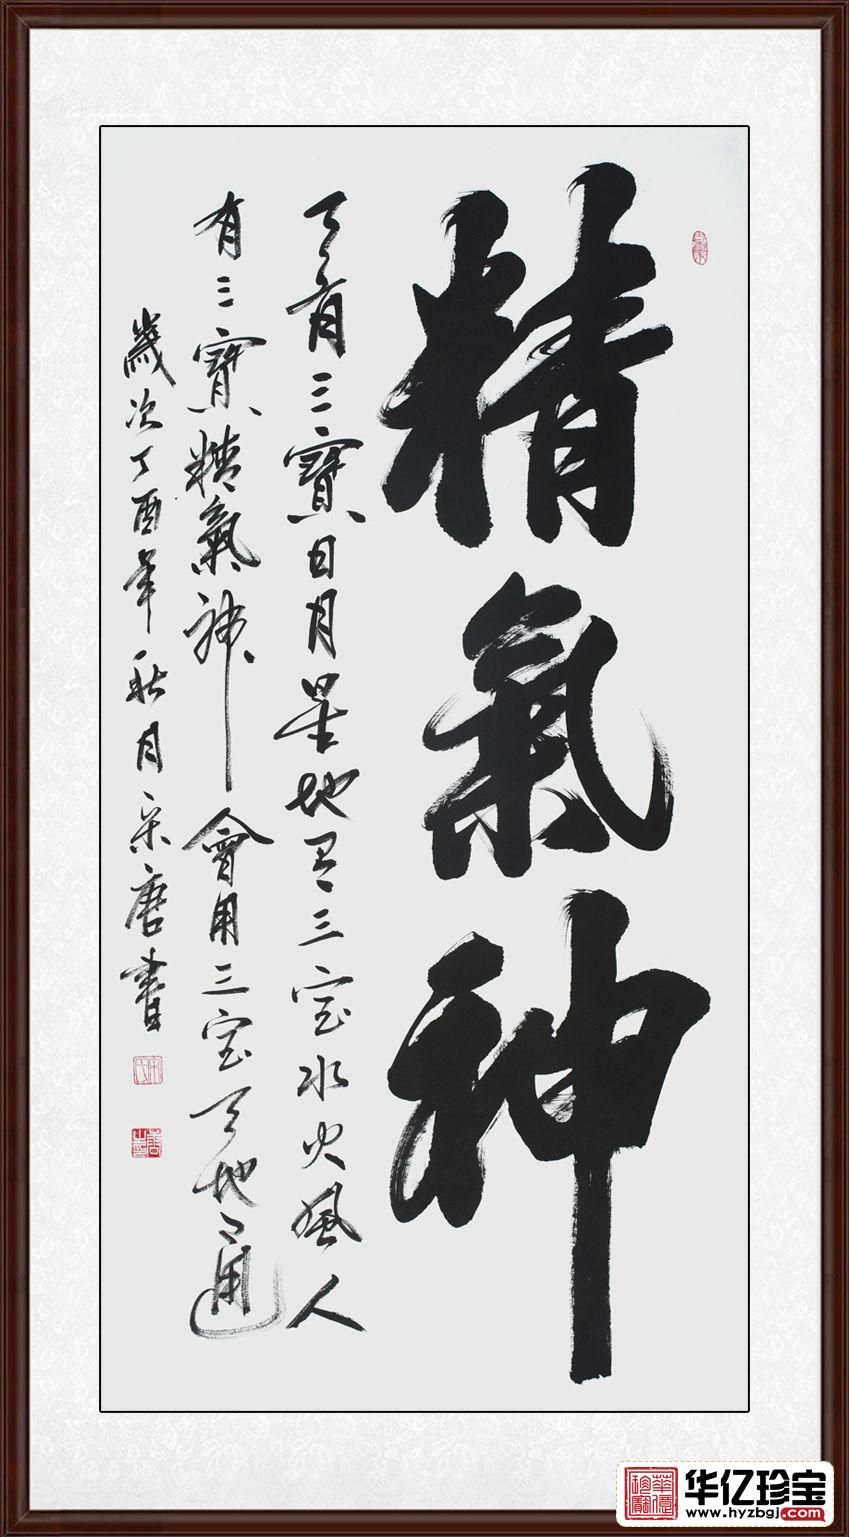 精氣神
天有三寶日月星地有三宝水火風人
有三寶精氣神會用三宝天地通
歲次丁酉年秋月宋唐書
华亿珍宝
www.hyzbgj.com